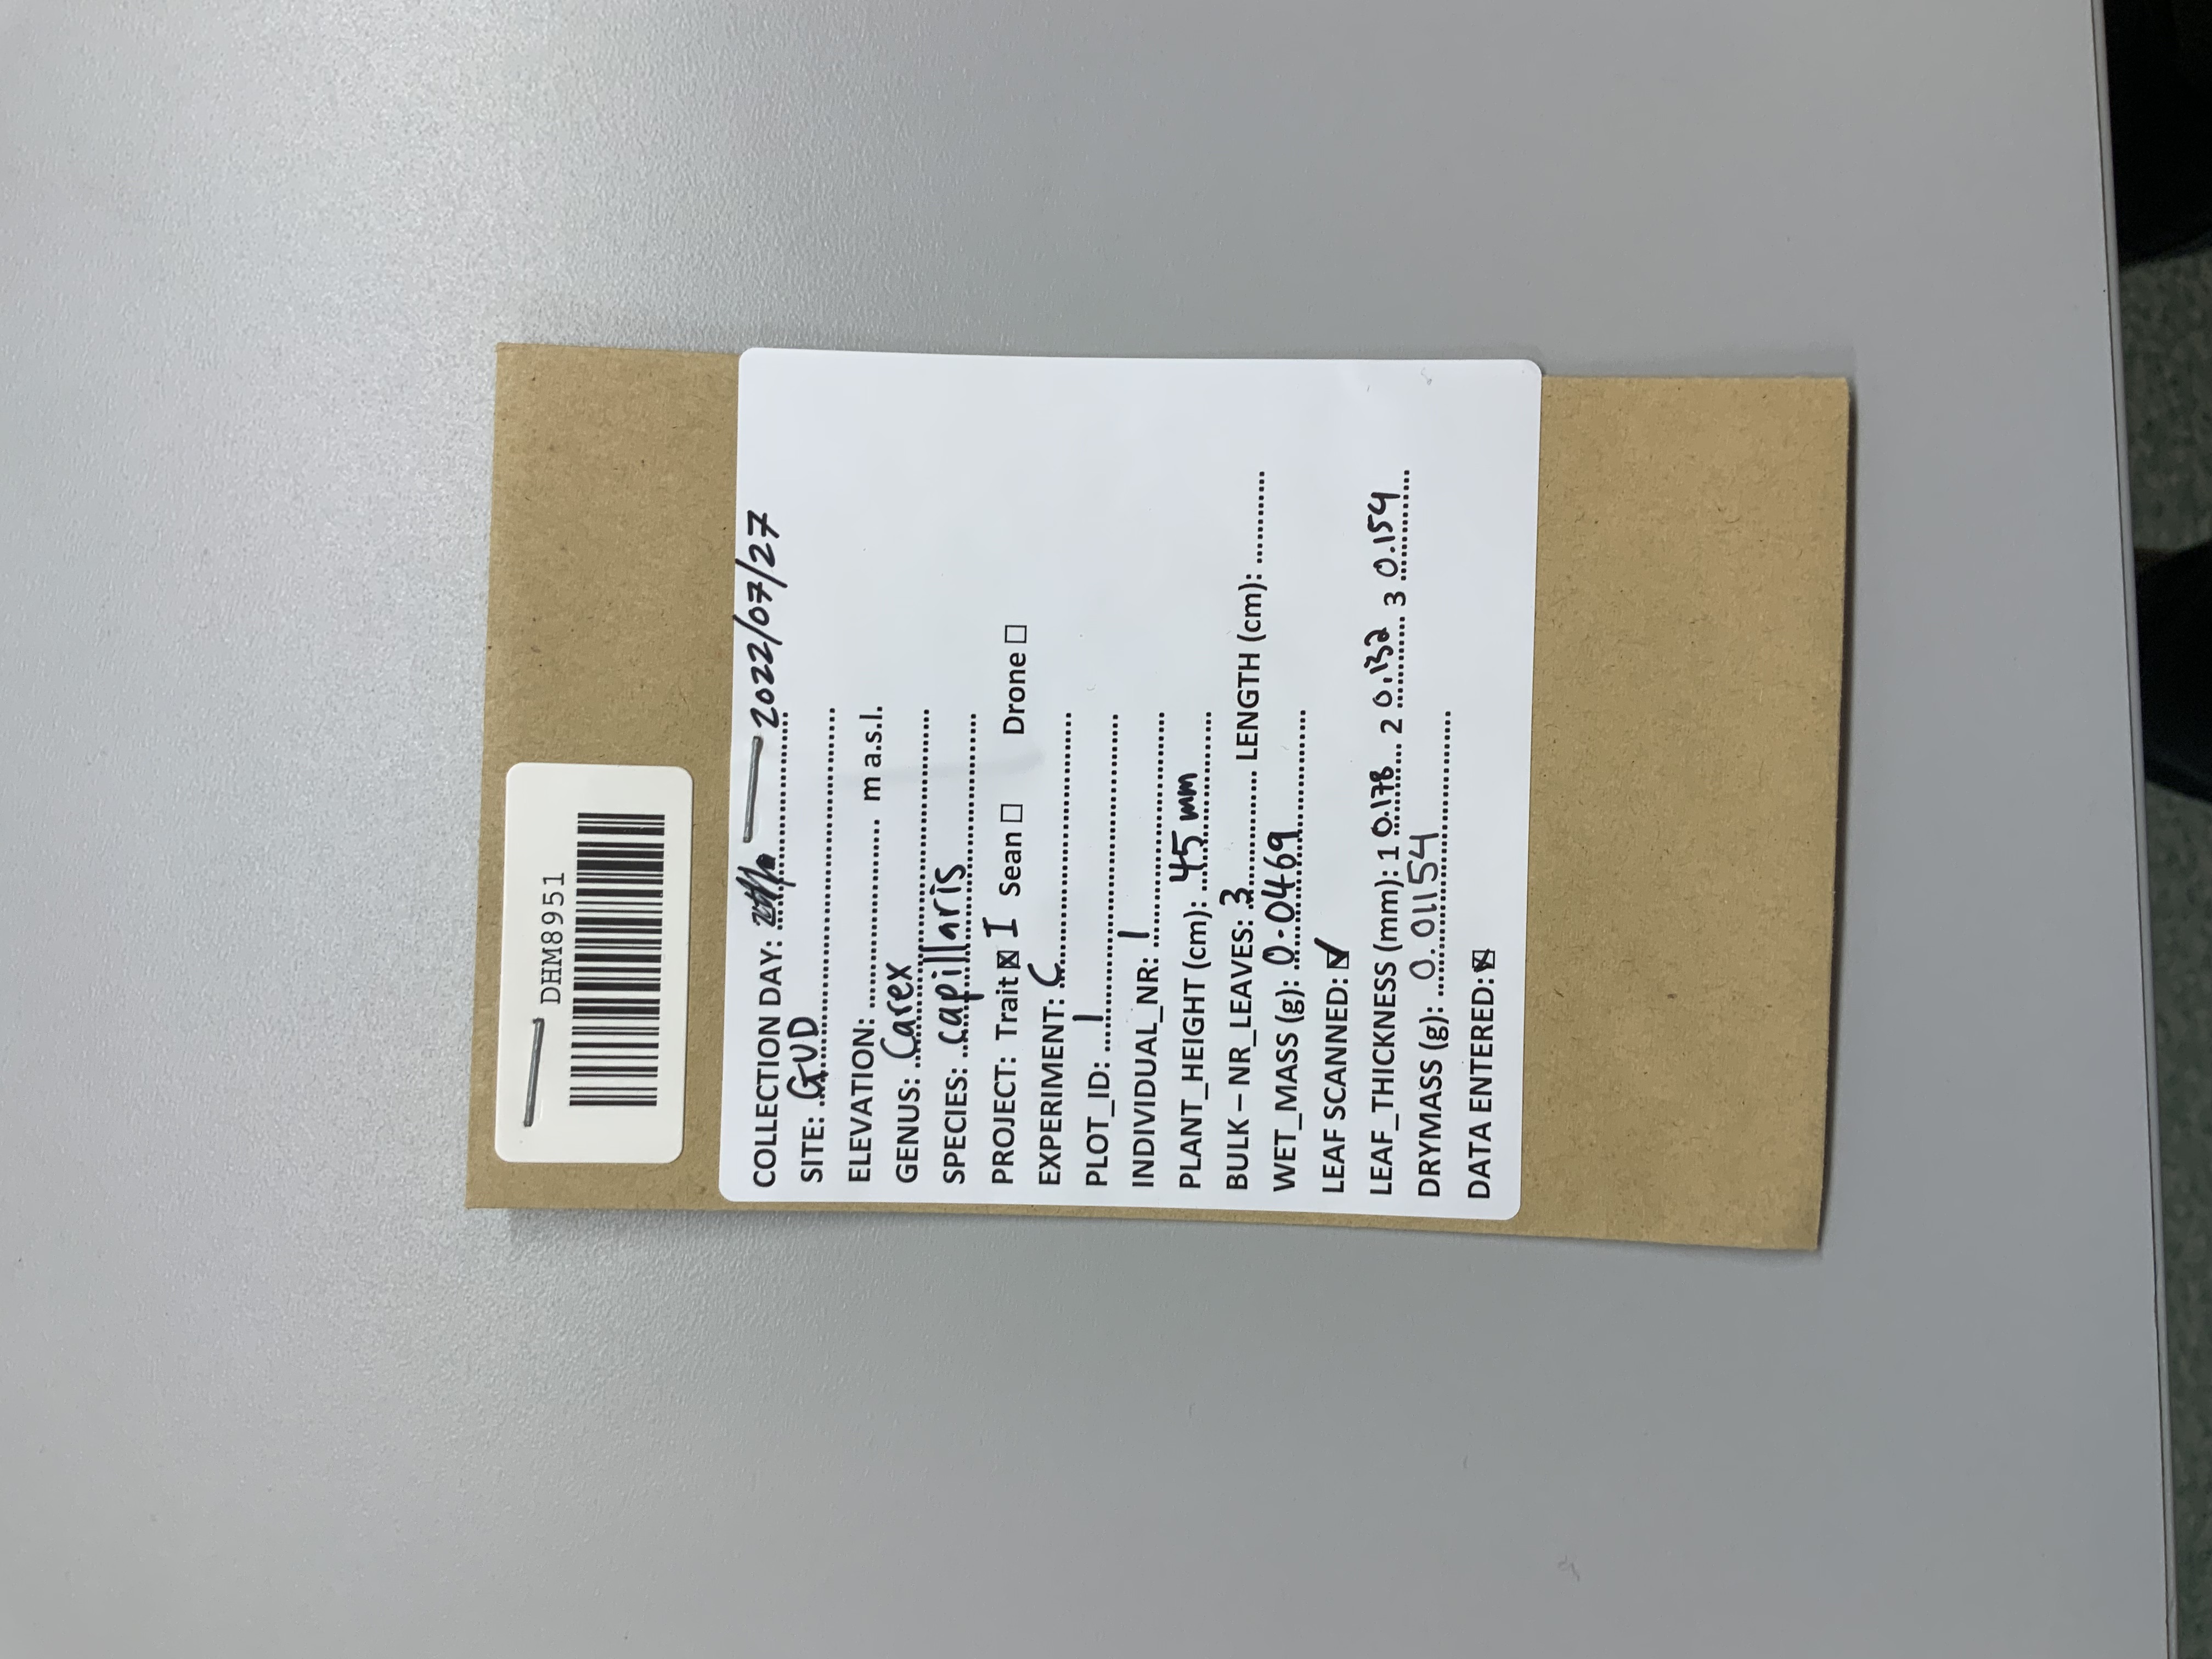 DHM8951
COLLECTION DAY: 2022/07/27
SITE: GUD
ELEVATION: m a.s.l.
GENUS: Carex
SPECIES: capillaris
PROJECT: Trait ☒ I Sean ☐ Drone ☐
EXPERIMENT: C
PLOT_ID: 1
INDIVIDUAL_NR: 1
PLANT_HEIGHT (cm): 45 mm
BULK – NR_LEAVES: 3 LENGTH (cm):
WET_MASS (g): 0.0469
LEAF SCANNED: ☑
LEAF_THICKNESS (mm): 1 0.178 2 0.132 3 0.154
DRYMASS (g): 0.01154
DATA ENTERED: ☒